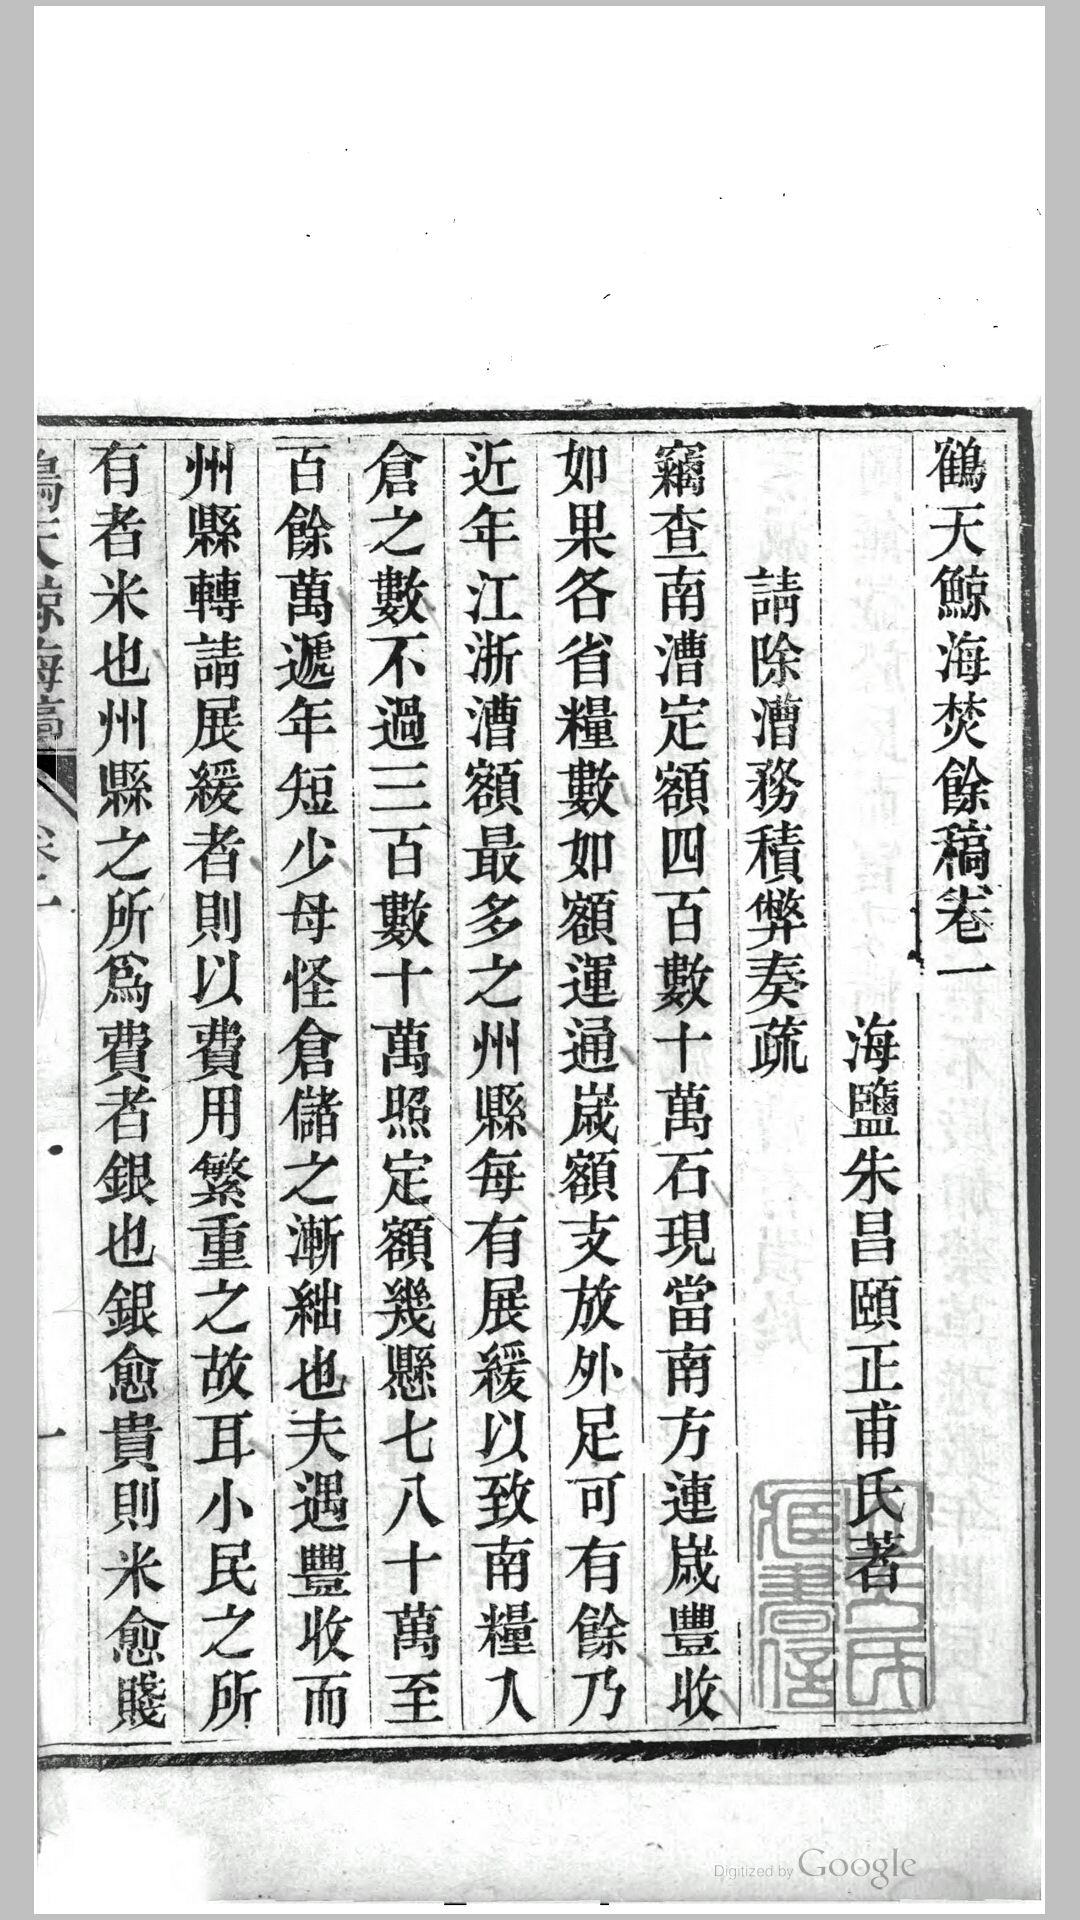 鶴天鯨海焚餘稿卷一
海鹽朱昌頤正甫氏著
請除漕務積弊奏疏
竊查南漕定額四百數十萬石現當南方連歲豐收
如果各省糧數如額運通歲額支放外足可有餘乃
近年江浙漕額最多之州縣每有展緩以致南糧入
倉之數不過三百數十萬照定額幾懸七八十萬至
百餘萬遞年短少毋怪倉儲之漸絀也夫遇豐收而
州縣轉請展緩者則以費用繁重之故耳小民之所
有者米也州縣之所爲費者銀也銀愈貴則米愈賤
鶴天鯨海稿
卷一
一
Digitized by Google